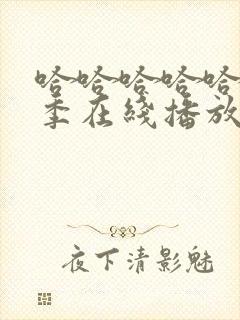 哈哈哈哈哈
季在綫播放
夜下清影魅